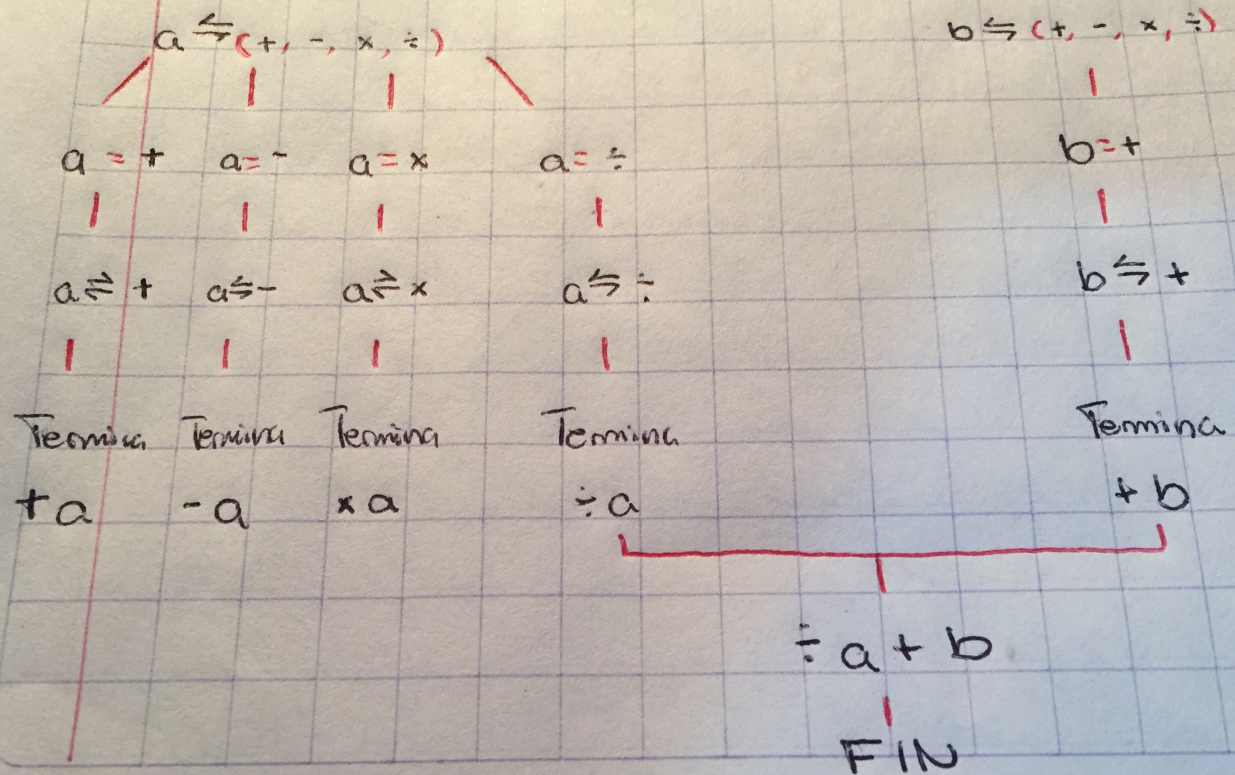 a ⇆ (+, -, ×, ÷) b ⇆ (+, -, ×, ÷)
a = + a = - a = × a = ÷ b = +
a ⇌ + a ⇆ - a ⇌ × a ⇆ ÷ b ⇆ +
Termina Termina Termina Termina Termina
+ a - a × a ÷ a + b
÷ a + b
FIN